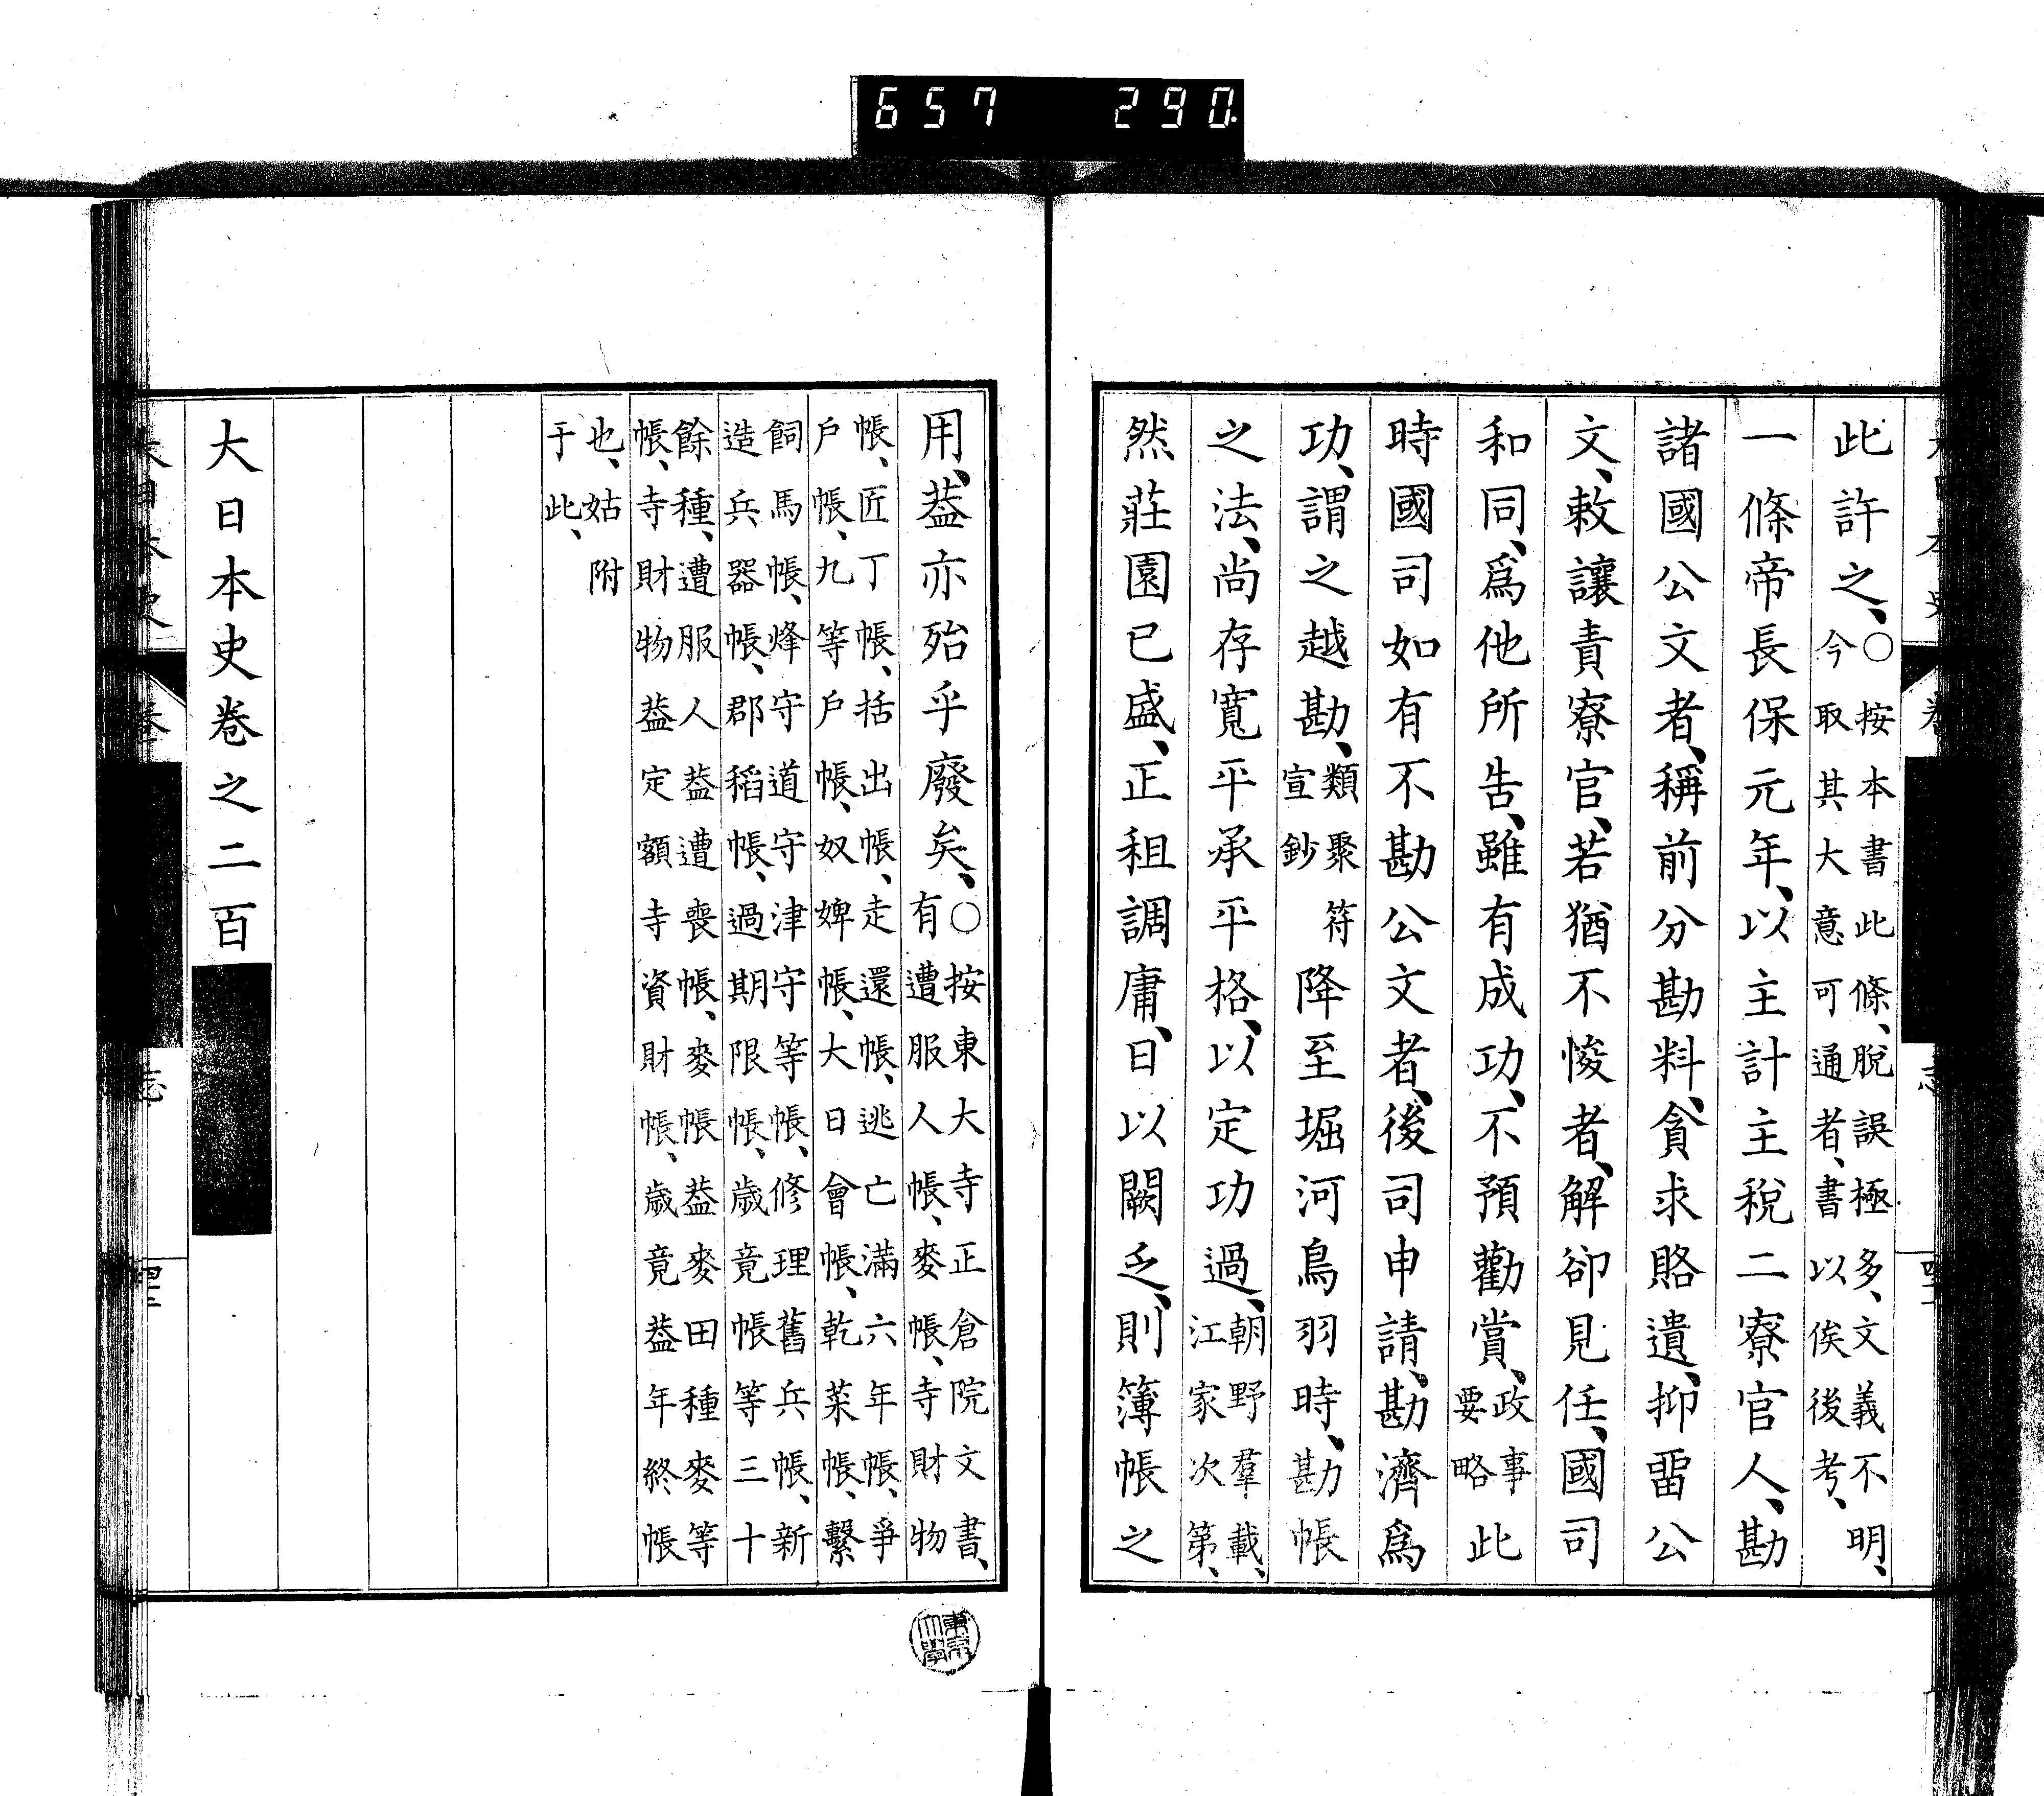 657 290
此許之、○按本書此條、脫誤極多、文義不明、今取其大意可通者、書以俟後考、
一條帝長保元年、以主計主稅二寮官人、勘
諸國公文者、稱前分勘料、貪求賂遺、抑畱公
文、敕讓責寮官、若猶不悛者、解卻見任、國司
和同、爲他所告、雖有成功、不預勸賞、政事要略此
時國司如有不勘公文者、後司申請、勘濟爲
功、謂之越勘、類聚符宣鈔降至堀河鳥羽時、勘帳
之法、尚存寬平承平格、以定功過、朝野羣載、江家次第、
然莊園已盛、正租調庸、日以闕乏、則簿帳之
用、葢亦殆乎廢矣、○按東大寺正倉院文書、有遭服人帳、麥帳、寺財物
帳、匠丁帳、括出帳、走還帳、逃亡滿六年帳、爭戶帳、九等戶帳、奴婢帳、大日會帳、乾菜帳、繫
飼馬帳、烽守道守津守等帳、修理舊兵帳、新造兵器帳、郡稻帳、過期限帳、歲竟帳等三十
餘種、遭服人葢遭喪帳、麥帳葢麥田種麥等帳、寺財物葢定額寺資財帳、歲竟葢年終帳
也、姑附于此、
大日本史卷之二百
東京大學